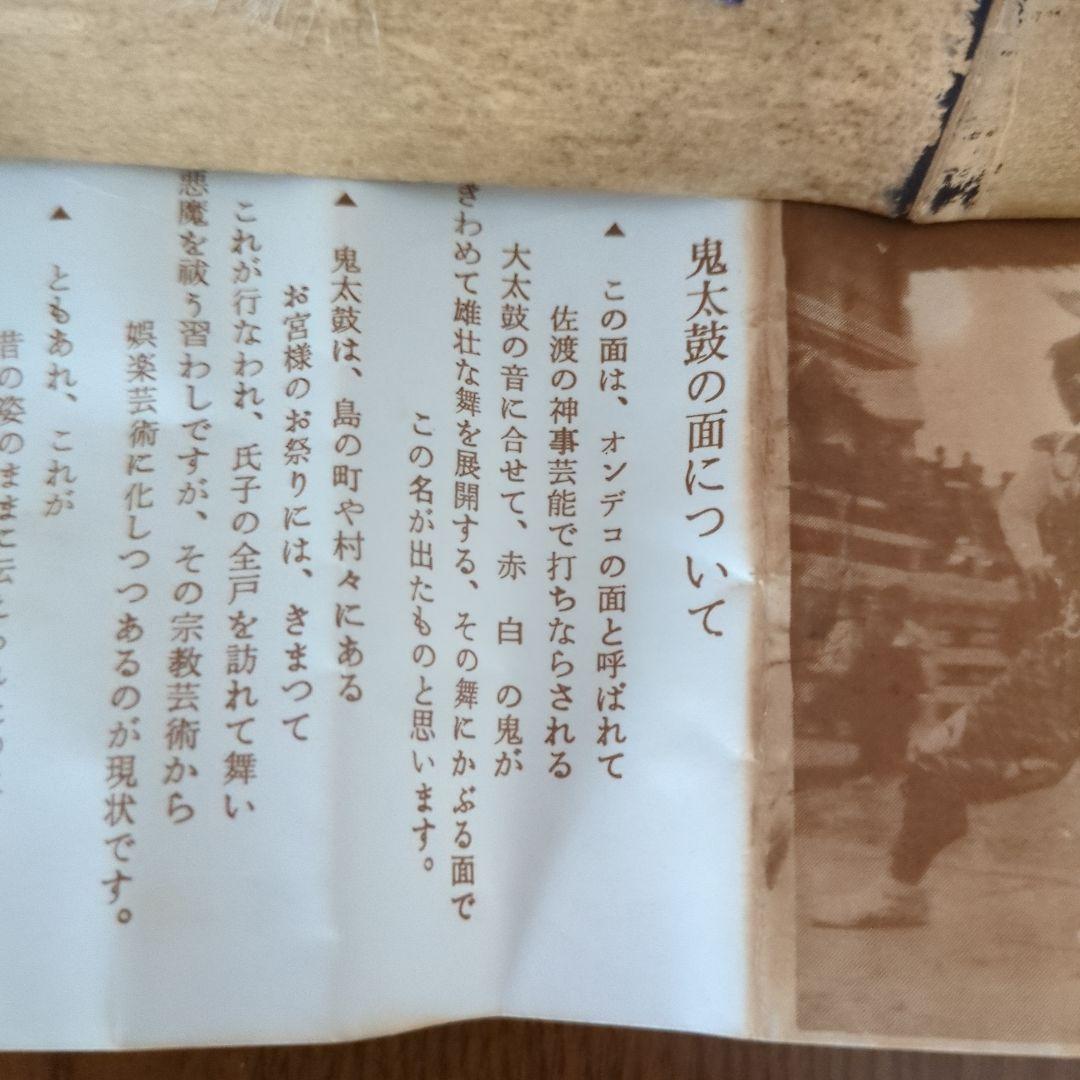 鬼太鼓の面について
▲ この面は、オンデコの面と呼ばれて
佐渡の神事芸能で打ちならされる
大太鼓の音に合せて、赤 白 の鬼が
きわめて雄壮な舞を展開する、その舞にかぶる面で
この名が出たものと思います。
▲ 鬼太鼓は、島の町や村々にある
お宮様のお祭りには、きまつて
これが行なわれ、氏子の全戸を訪れて舞い
悪魔を祓う習わしですが、その宗教芸術から
娯楽芸術に化しつつあるのが現状です。
▲ ともあれ、これが
昔の姿のままに